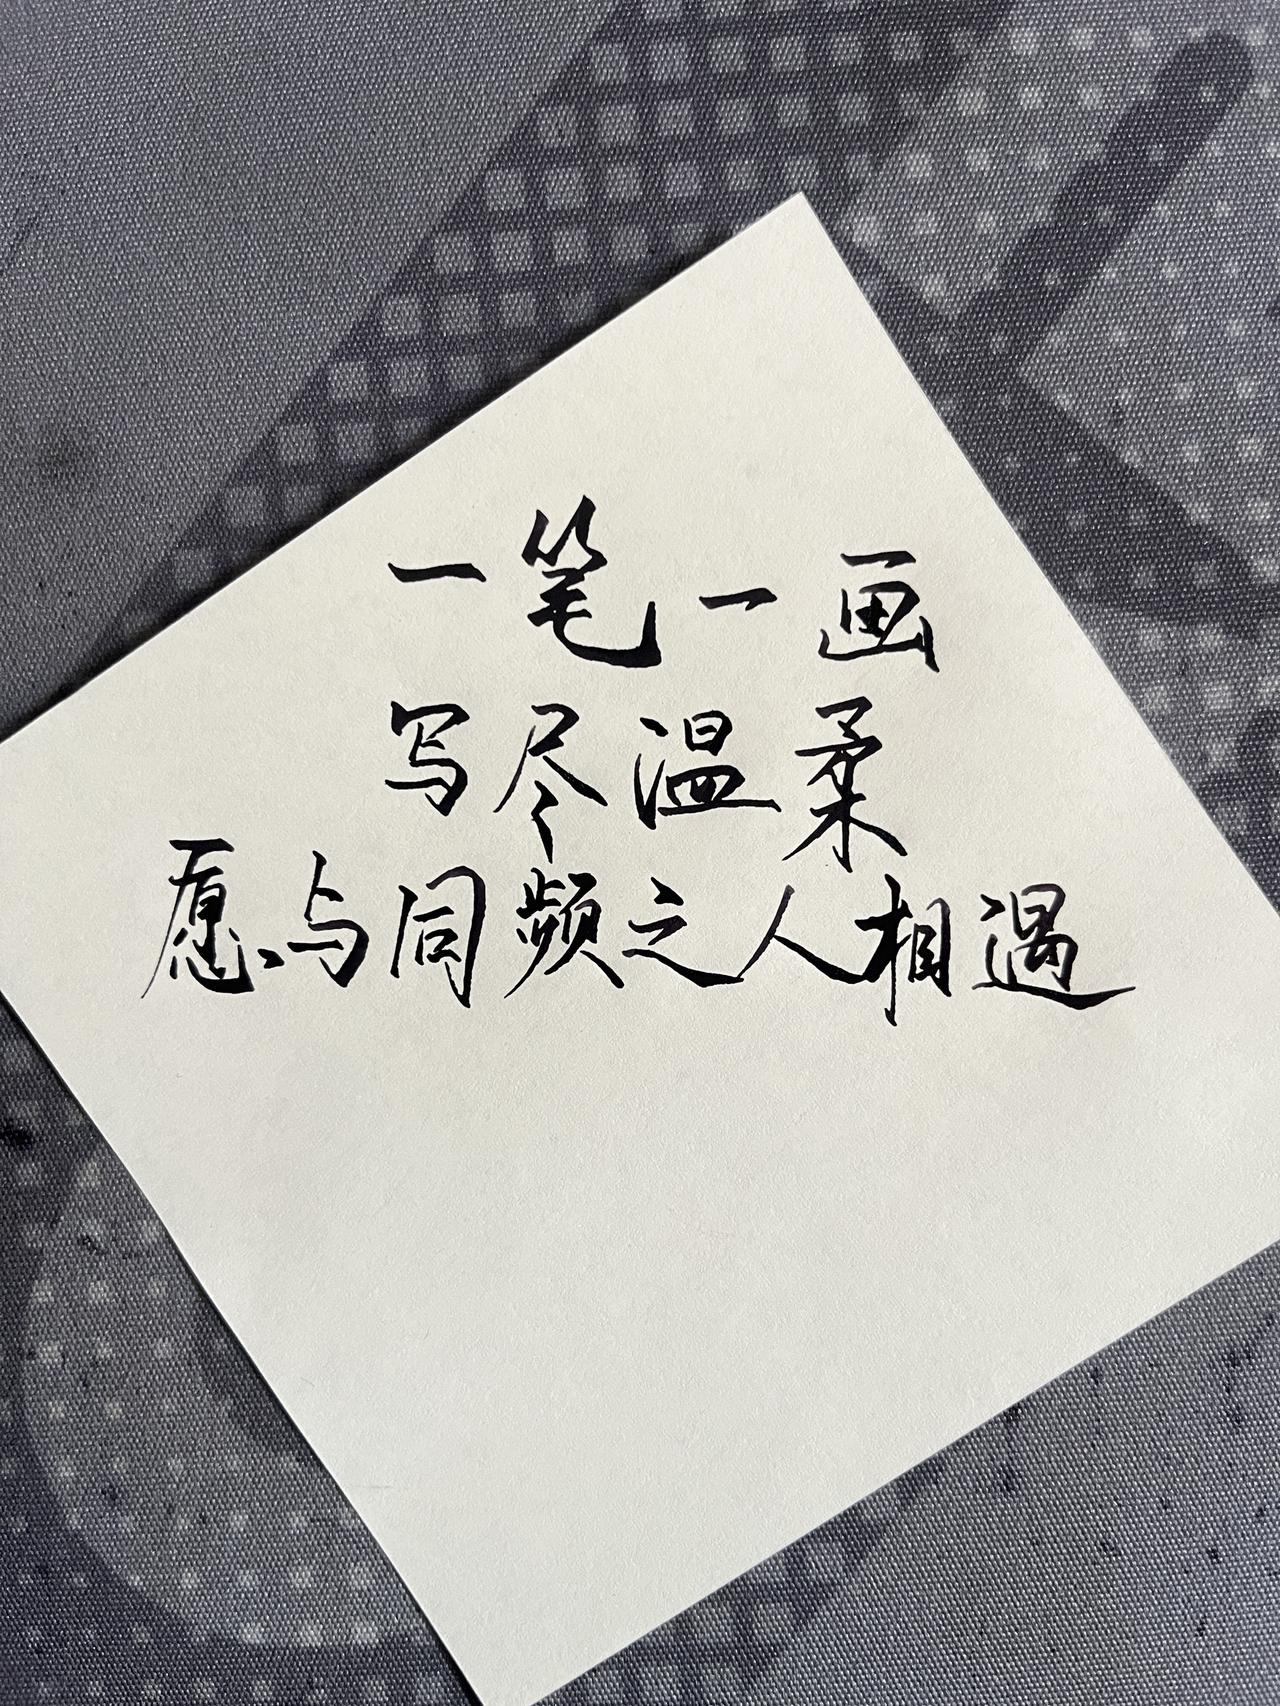 一笔一画
写尽温柔
愿与同频之人相遇